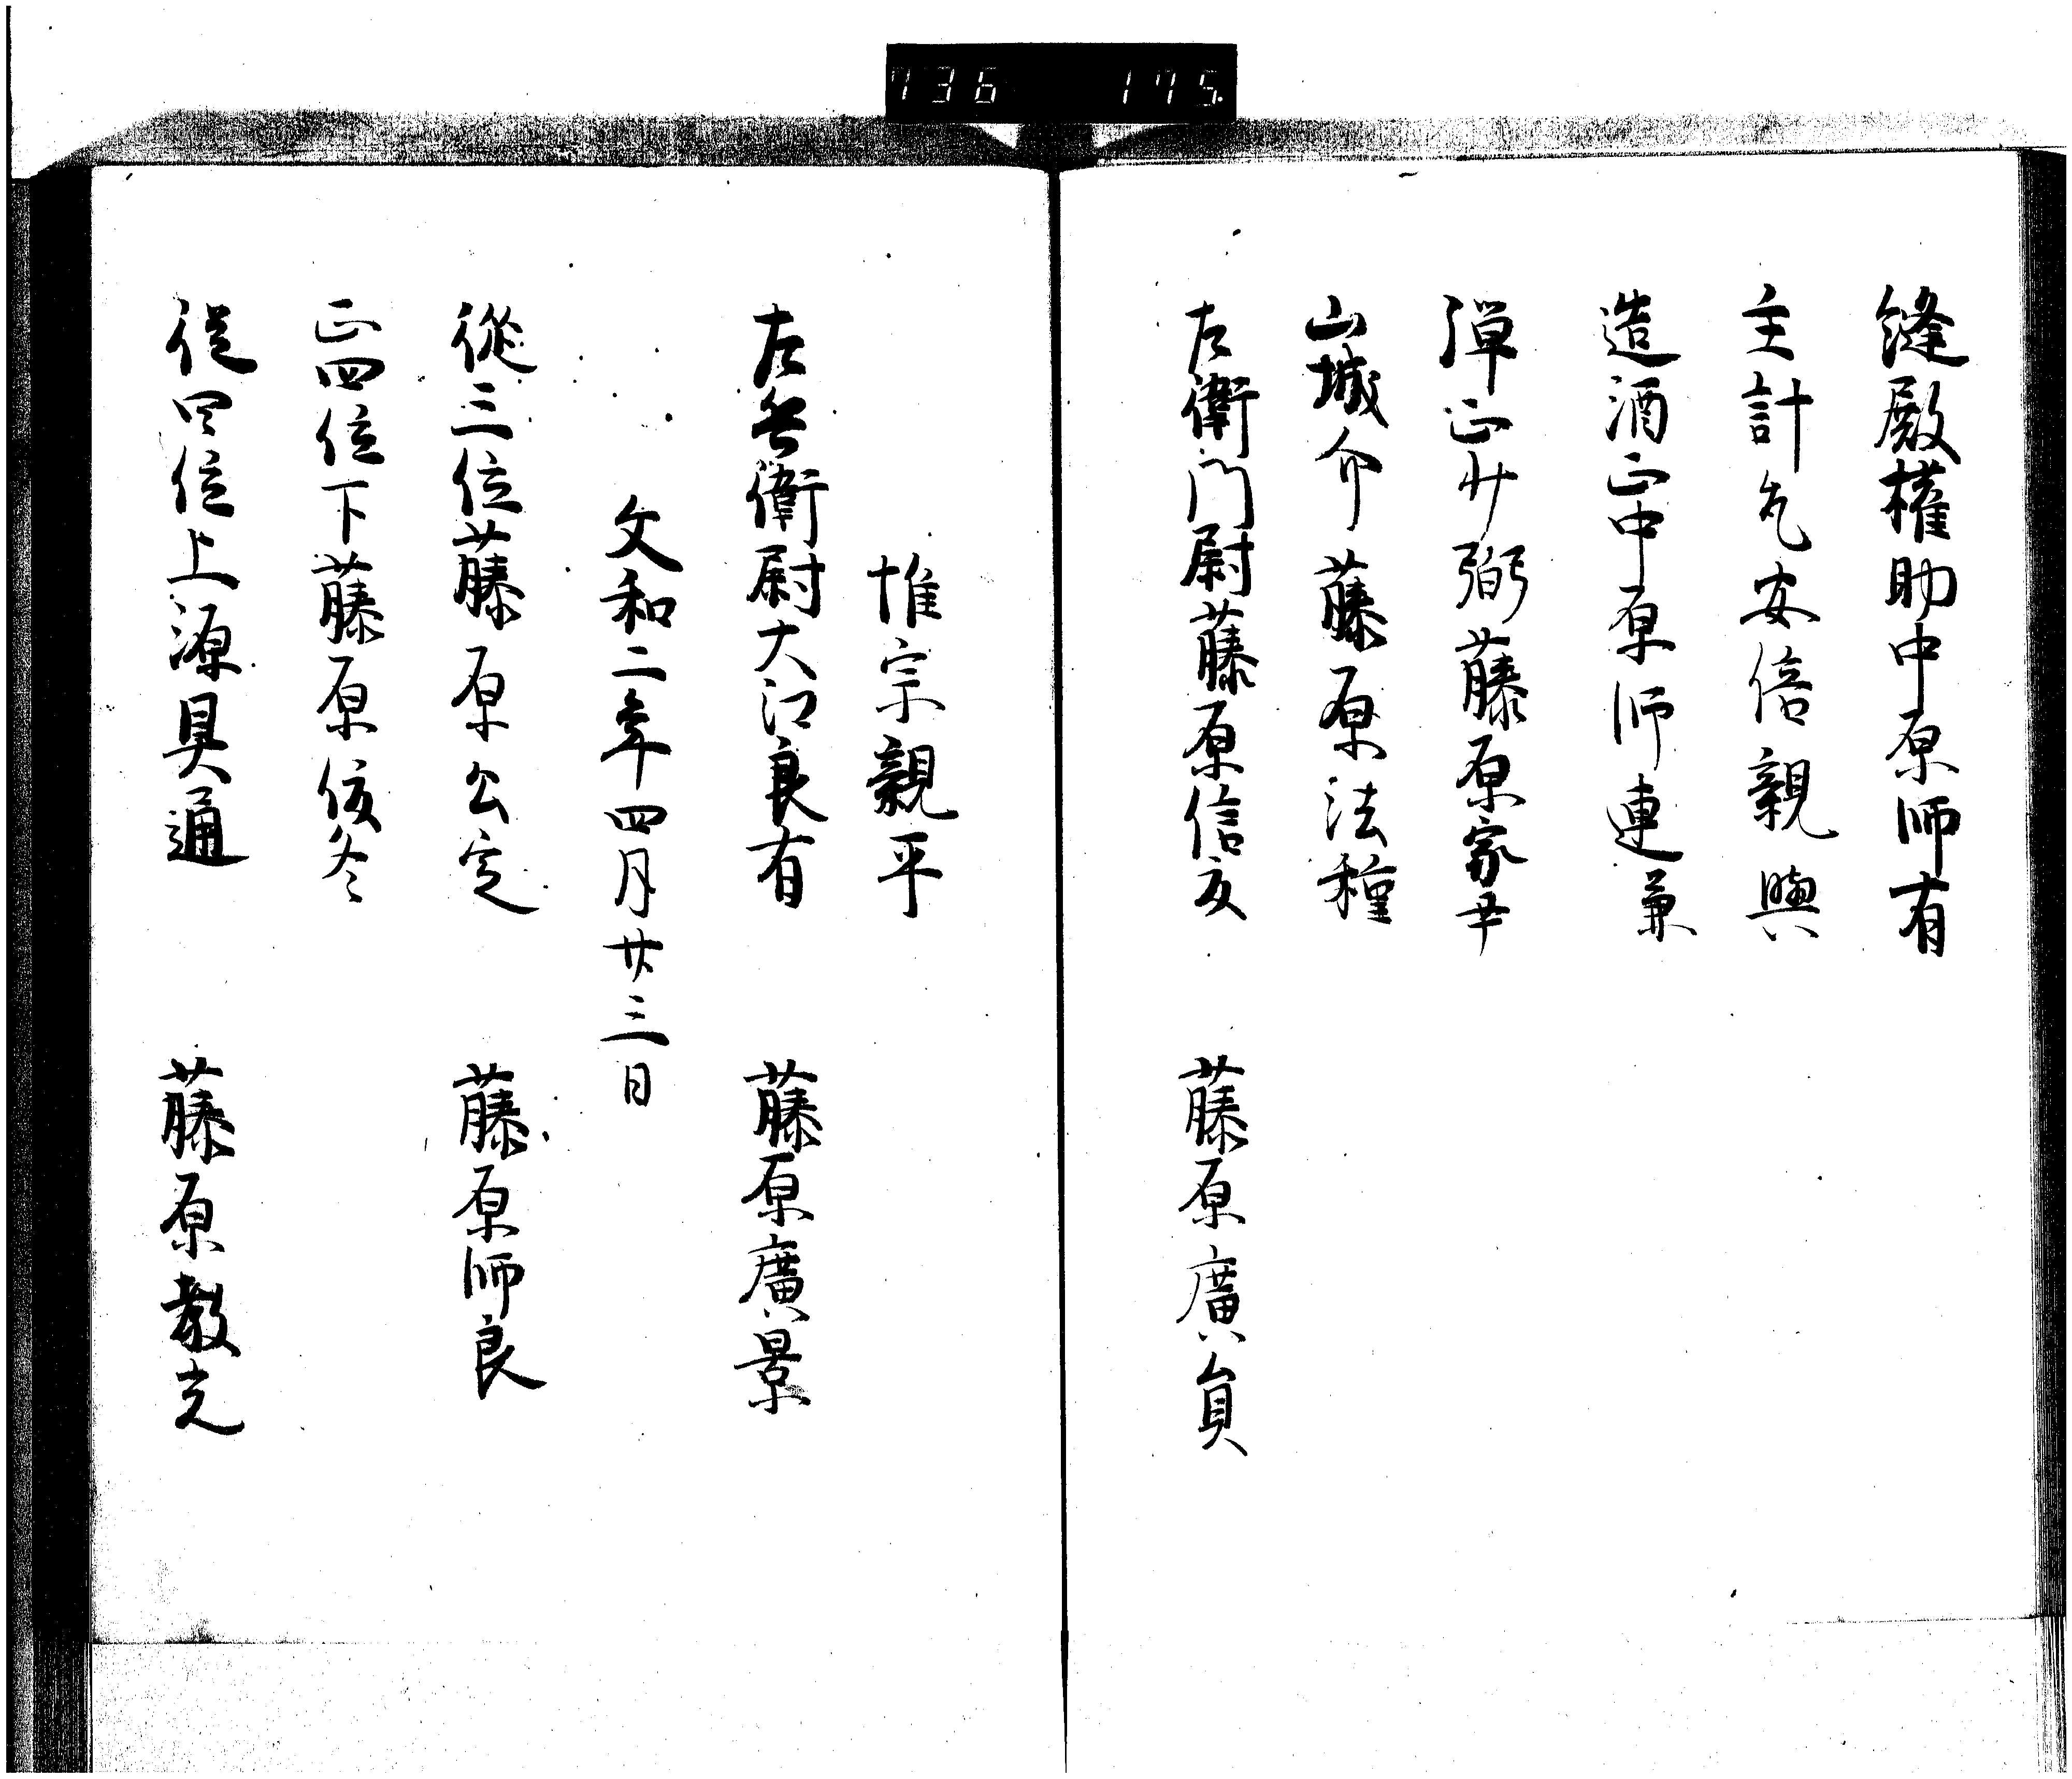 736 175
縫殿權助中原師有
主計允安倍親興
造酒正中原師連兼
弾正少弼藤原家尹
山城介藤原法種
左衛門尉藤原信友 藤原廣貞
惟宗親平
左兵衛尉大江良有 藤原廣景
文和二年四月廿三日
從三位藤原公定 藤原師良
正四位下藤原俊冬
從四位上源具通 藤原教光